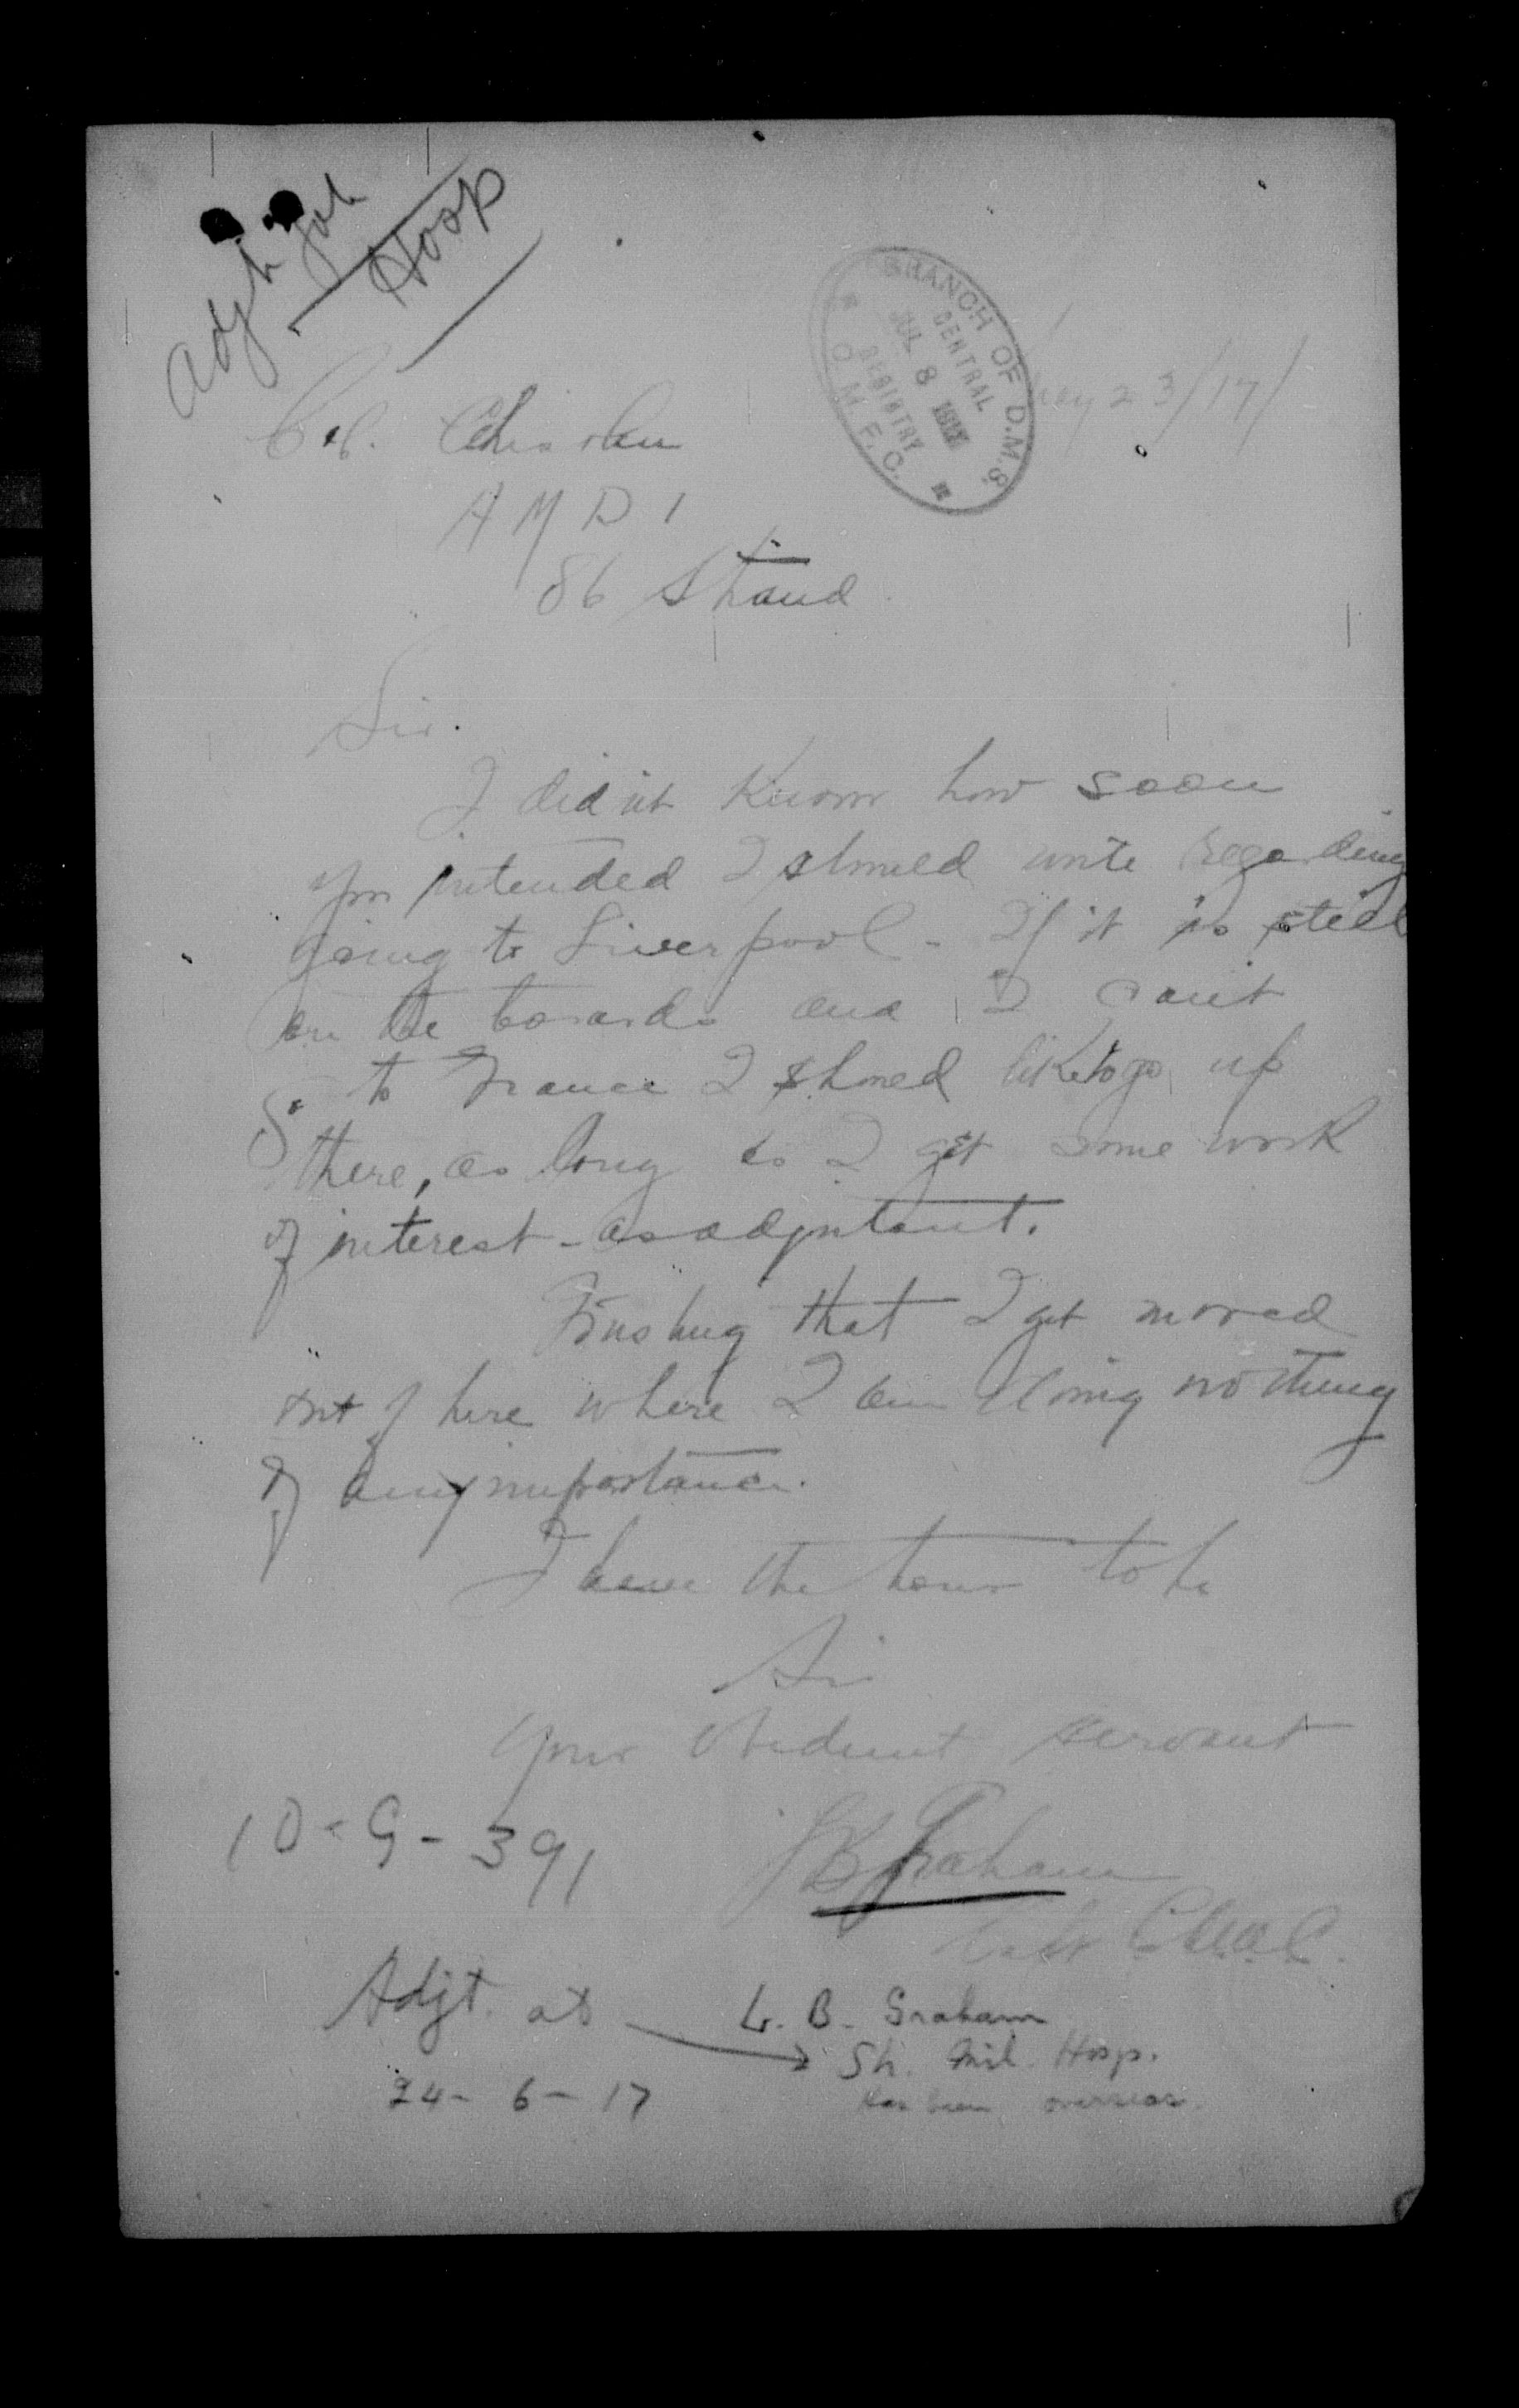 Adjt job
Hosp
BRANCH OF D.M.S.
CENTRAL
JUL 8
REGISTRY
O.M.F.C.
May 23/17/
Col. Chisholm
A M D 1
86 Strand
Sir.
I didn't know how soon
you intended I should write regarding
going to Liverpool - If it is still
on the boards and I can't
go to France I should like to go up
there, as long as I get some work
of interest - as adjutant.
Trusting that I get moved
out of here where I am doing nothing
of any importance.
I have the honor to be
Sir
Your obedient servant
Graham
Capt C.A.M.C.
10-G-391
Adjt. at
L. B. Graham
Sh. Mil. Hosp.
24-6-17
has been overseas.